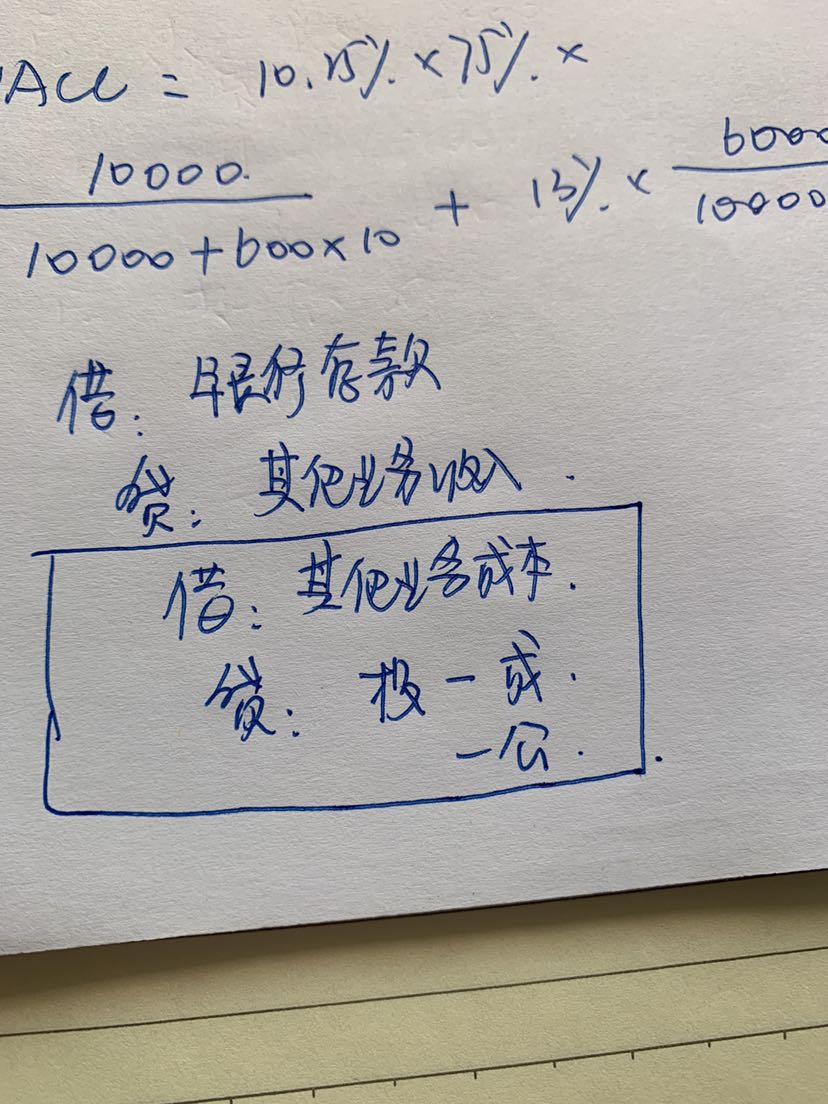 WACC = 10.25% × 75% ×
10000
10000+600×10 + 13% × 6000
10000
借: 银行存款
贷: 其他业务收入.
借: 其他业务成本.
贷: 投-成.
-公.